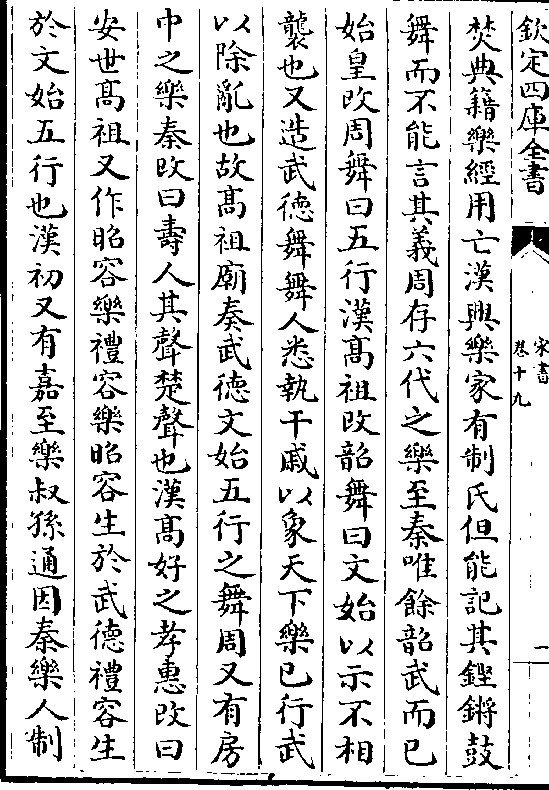 欽定四庫全書
宋書
卷十九
一
焚典籍樂經用亡漢興樂家有制氏但能記其鏗鏘鼓
舞而不能言其義周存六代之樂至秦唯餘韶武而已
始皇改周舞曰五行漢髙祖改韶舞曰文始以示不相
襲也又造武徳舞舞人悉執干戚以象天下樂已行武
以除亂也故髙祖廟奏武徳文始五行之舞周又有房
中之樂秦改曰壽人其聲楚聲也漢髙好之孝惠改曰
安世髙祖又作昭容樂禮容樂昭容生於武徳禮容生
於文始五行也漢初又有嘉至樂叔孫通因秦樂人制